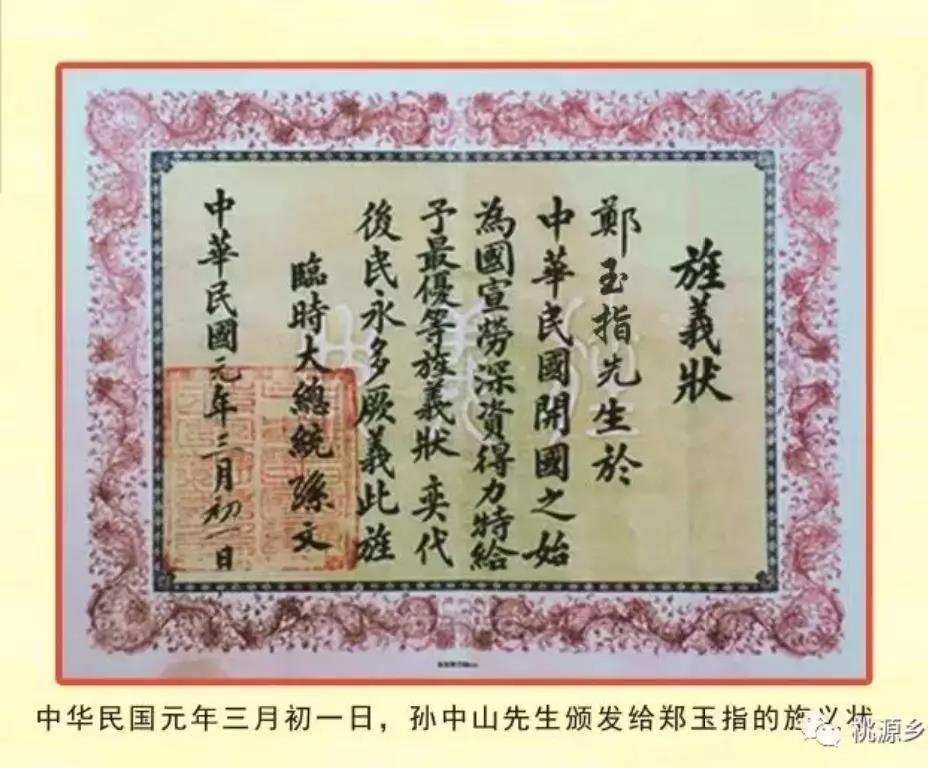 旌義狀
鄭玉指先生於
中華民國開國之始
為國宣勞深資得力特給
予最優等旌義狀奕代
後民永多厥義此旌
臨時大總統孫文
中華民國元年三月初一日
中华民国元年三月初一日，孙中山先生颁发给郑玉指的旌义状
桃源乡